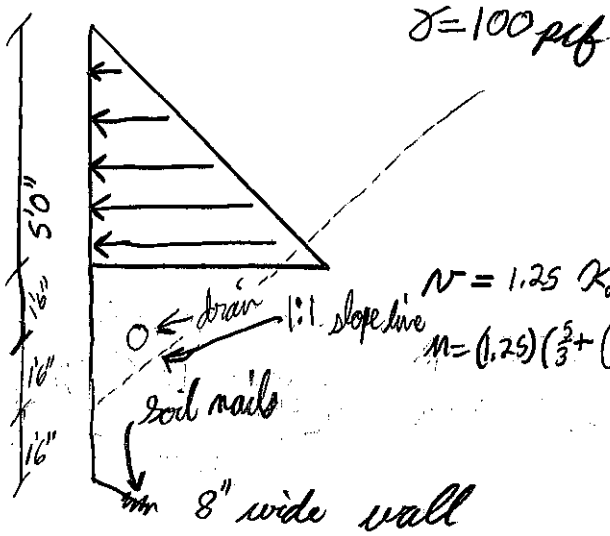 γ=100 pcf
5'0"
1'6"
drain
1:1 slope line
V = 1.25 K
1'6"
M= (1.25)(5/3+(
soil nails
1'6"
8" wide wall